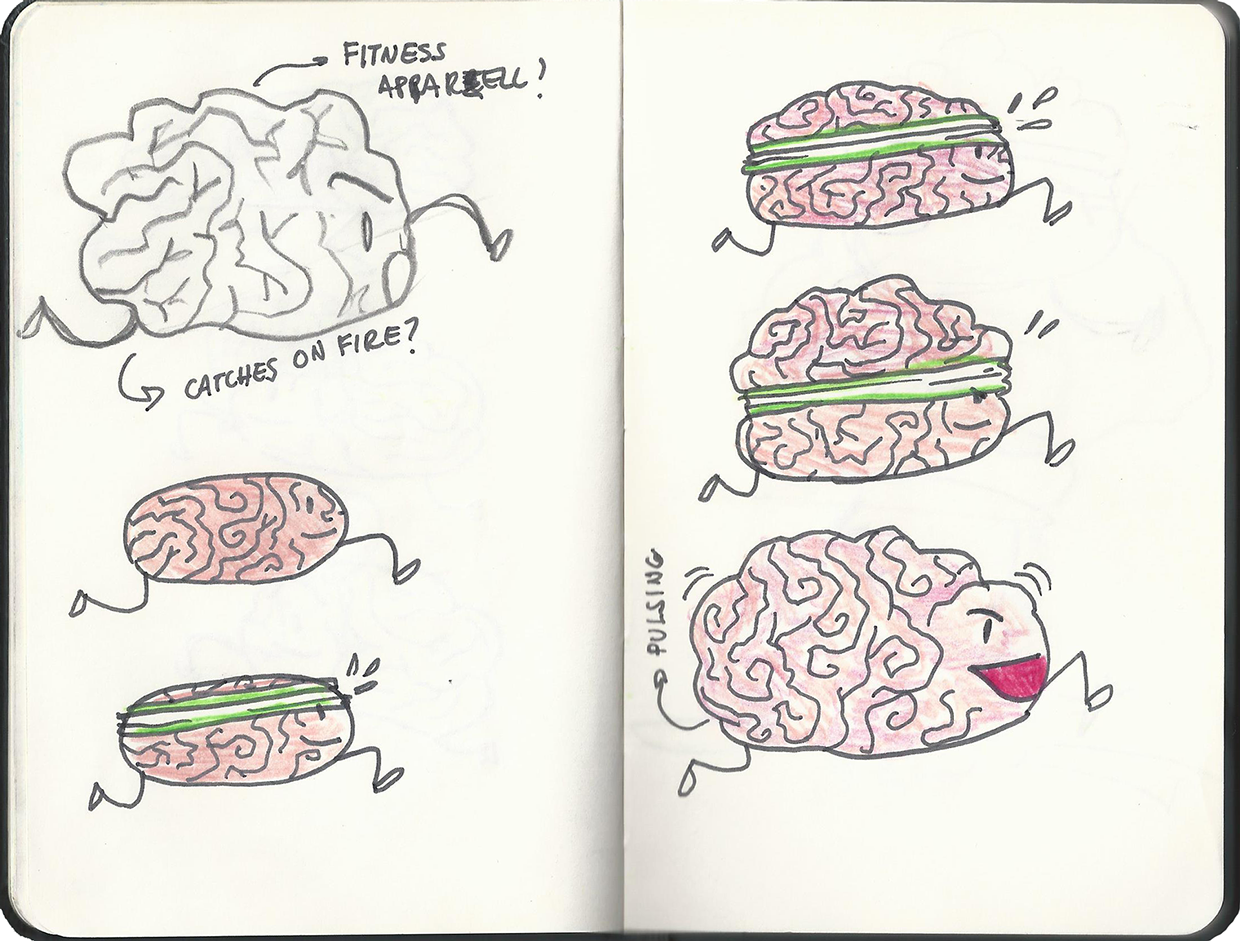 FITNESS
APPARELL?
CATCHES ON FIRE?
PULSING